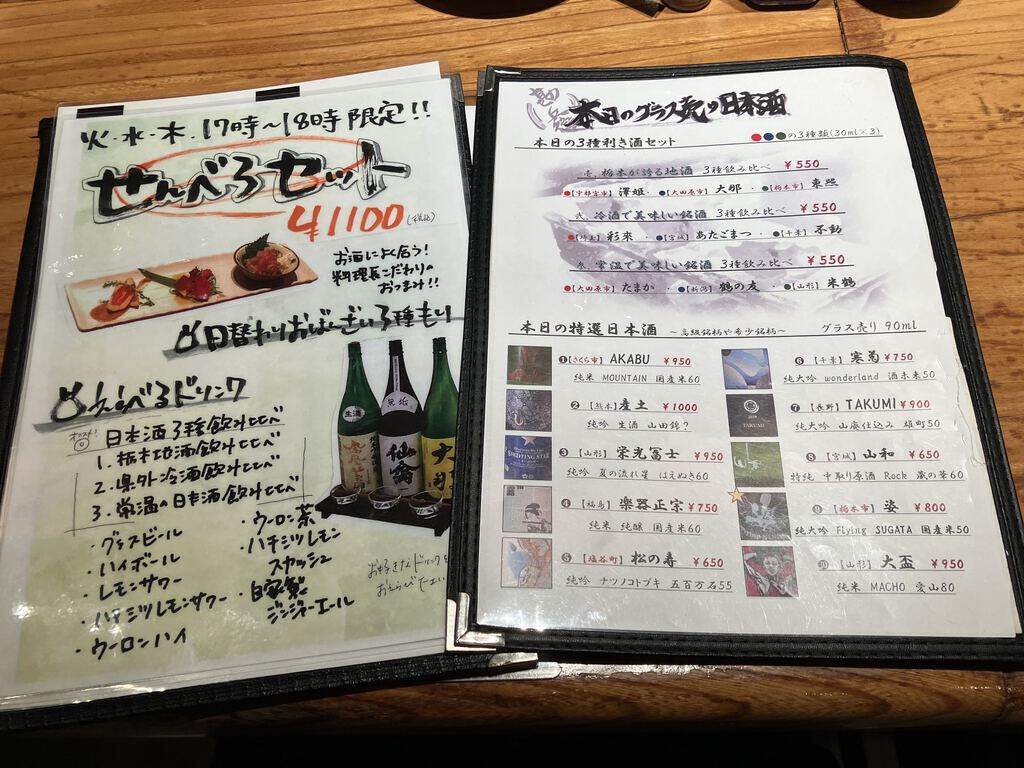 火・水・木. 17時〜18時 限定!!
せんべろセット
¥1100 (税込)
お酒によく合う!
料理長こだわりの
おつまみ!!
日替わりおばんざい3種もり
せんべろドリンク
オススメ!
日本酒3種飲み比べ
1. 栃木地酒飲み比べ
2. 県外冷酒飲み比べ
3. 常温の日本酒飲み比べ
・グラスビール
・ハイボール
・レモンサワー
・ハチミツレモンサワー
・ウーロンハイ
・ウーロン茶
・ハチミツレモン
スカッシュ
・自家製
ジンジャーエール
お好きなドリンクを
おえらび下さい
生酒
仙禽
本日のグラス売り日本酒
本日の3種利き酒セット
●●●の3種類(30ml×3)
壱. 栃木が誇る地酒 3種飲み比べ ¥550
●【宇都宮市】澤姫・●【大田原市】大那・●【栃木市】東照
弐. 冷酒で美味しい銘酒 3種飲み比べ ¥550
●【埼玉】彩來・●【宮城】あたごまつ・●【千葉】不動
参. 常温で美味しい銘酒 3種飲み比べ ¥550
●【大田原市】たまか・●【新潟】鶴の友・●【山形】米鶴
本日の特選日本酒 ~高級銘柄や希少銘柄~ グラス売り 90ml
❶【さくら市】AKABU ¥950
純米 MOUNTAIN 国産米60
②【熊本】産土 ¥1000
純吟 生酒 山田錦?
③【山形】栄光冨士 ¥950
純吟 夏の流れ星 はえぬき60
④【福島】楽器正宗 ¥750
純米 純醸 国産米60
⑤【塩谷町】松の寿 ¥650
純吟 ナツノコトブキ 五百万石55
⑥【千葉】寒菊 ¥750
純大吟 wonderland 酒未来50
⑦【長野】TAKUMI ¥900
純大吟 山廃仕込み 雄町50
⑧【宮城】山和 ¥650
特純 中取り原酒 Rock 蔵の華60
⑨【栃木市】姿 ¥800
純大吟 Flying SUGATA 国産米50
⑩【山形】大盃 ¥950
純米 MACHO 愛山80